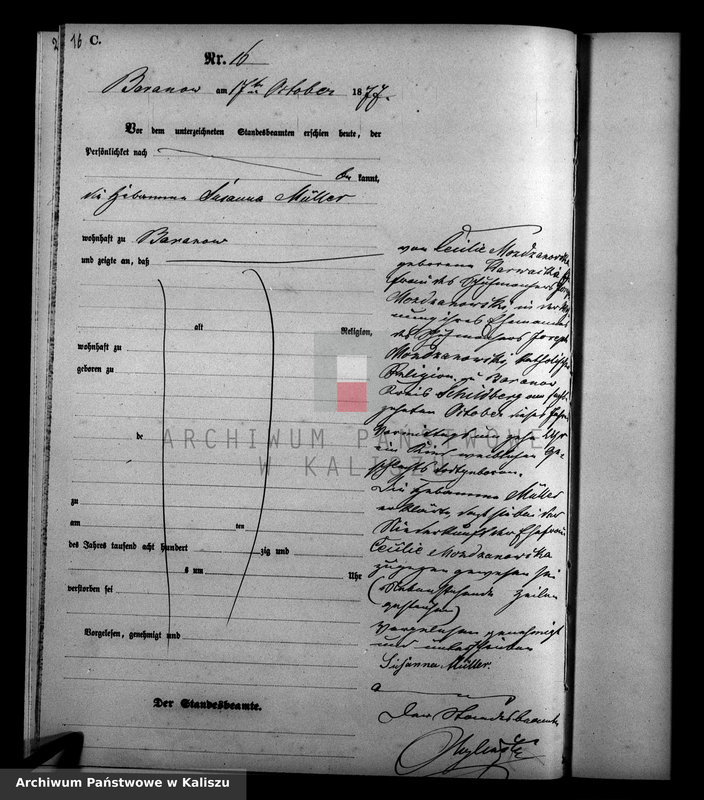 2
16 C.
Nr. 16
Baranow am 17ten October 1877.
Vor dem unterzeichneten Standesbeamten erschien heute, der
Persönlichket nach
be kannt,
die Hebamme Susanna Müller
wohnhaft zu Baranow
und zeigte an, daß
alt Religion,
wohnhaft zu
geboren zu
de
zu
am ten
des Jahres tausend acht hundert zig und
s um Uhr
verstorben sei
Vorgelesen, genehmigt und
Der Standesbeamte.
von Cecilie Mozdzanowska
geborene
Frau des
Mozdzanowski, in der Woh-
nung ihres Ehemannes
des Joseph
Mozdzanowski, katholischer
Religion zu Baranow
Kreis Schildberg am sech-
zehnten October dieses Jahres
Vormittags um zehn Uhr
ein Kind weiblichen Ge-
schlechts todtgeboren.
Die Hebamme Müller
erklärte, daß sie bei der
Niederkunft der Ehefrau
Cecilie Mozdzanowska
zugegen gewesen sei
(Nebenstehende Zeilen
gestrichen)
Vorgelesen genehmigt
und unterschrieben
Susanna Müller
Der Standesbeamte
ARCHIWUM PAŃSTWOWE
W KALISZU
Archiwum Państwowe w Kaliszu